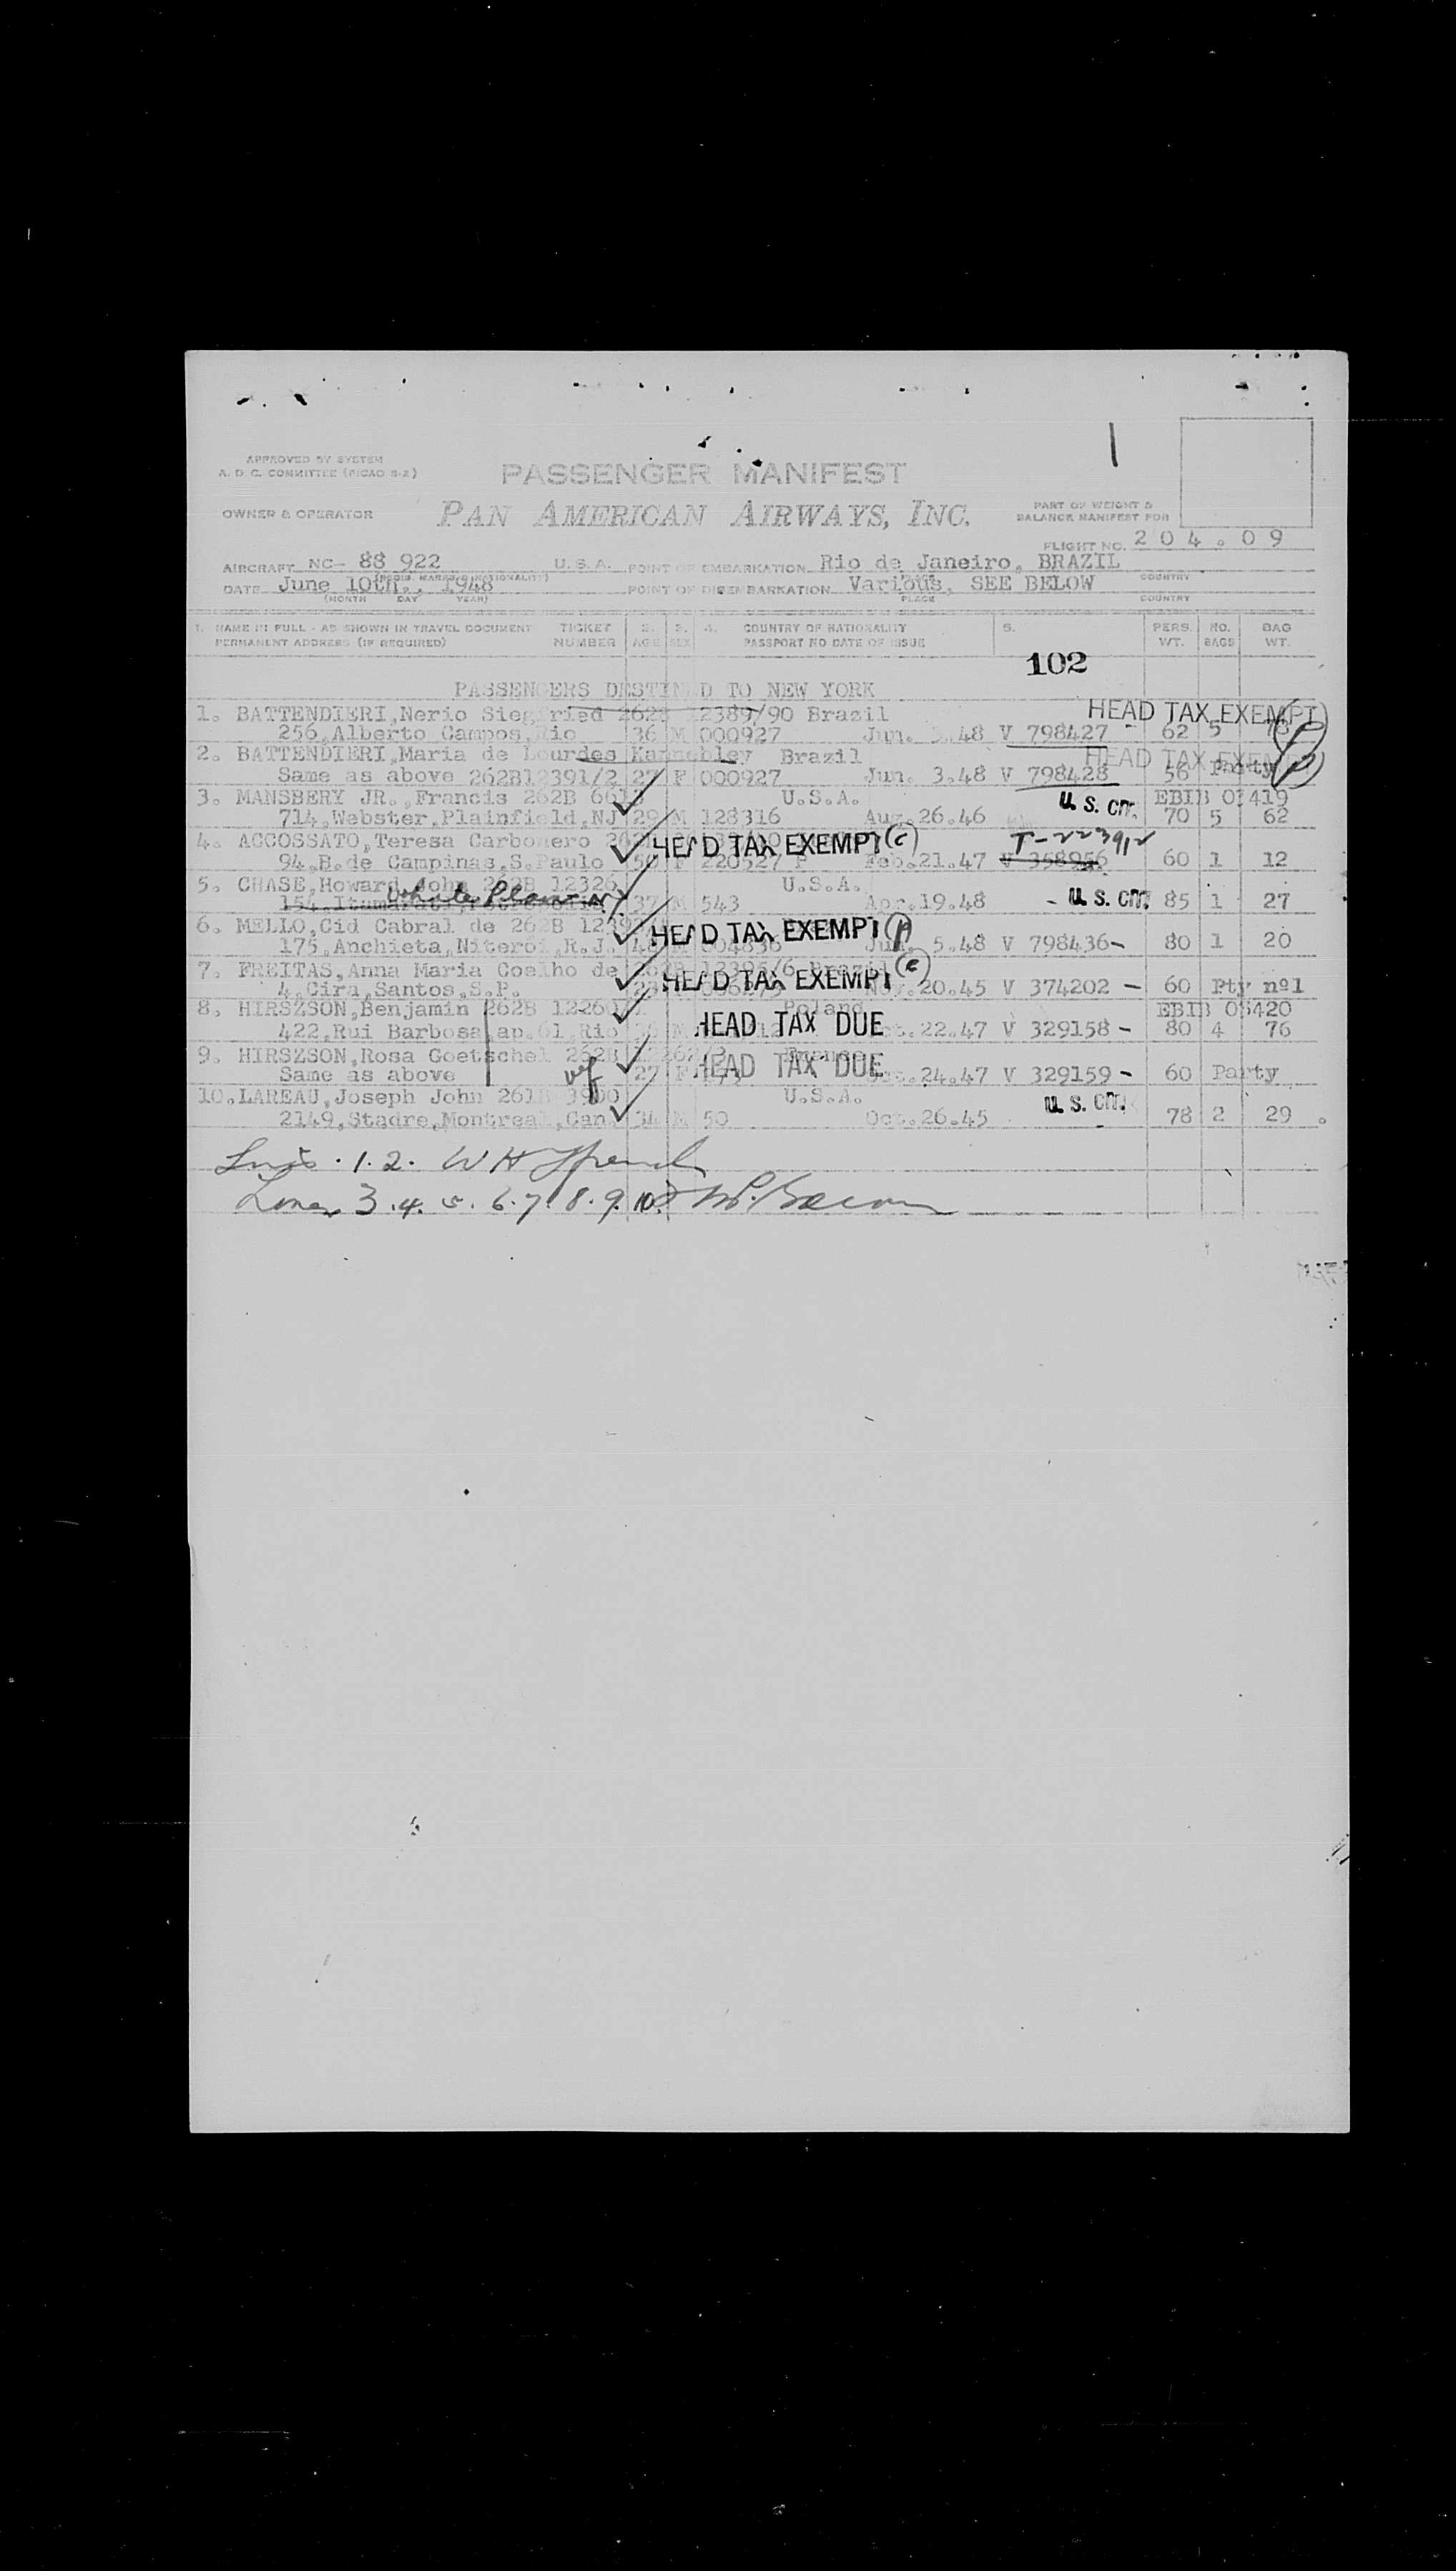 APPROVED BY SYSTEM
A. D. C. COMMITTEE (PICAO S-2)
PASSENGER MANIFEST
OWNER & OPERATOR
PAN AMERICAN AIRWAYS, INC.
PART OF WEIGHT &
BALANCE MANIFEST FOR
FLIGHT NO. 204.09
AIRCRAFT NC- 88 922 U.S.A. POINT OF EMBARKATION Rio de Janeiro, BRAZIL
DATE June 10th., 1948 POINT OF DISEMBARKATION Various, SEE BELOW
(MONTH DAY YEAR) PLACE COUNTRY
1. NAME IN FULL - AS SHOWN IN TRAVEL DOCUMENT TICKET 2. 3. 4. COUNTRY OF NATIONALITY 5. PERS. NO. BAG
PERMANENT ADDRESS (IF REQUIRED) NUMBER AGE SEX PASSPORT NO DATE OF ISSUE WT. BAGS WT.
102
PASSENGERS DESTINED TO NEW YORK
1. BATTENDIERI,Nerio Siegfried 262B 12389/90 Brazil HEAD TAX EXEMPT
256,Alberto Campos,Rio 36 M 000927 Jun. 3.48 V 798427 62 5
2. BATTENDIERI,Maria de Lourdes Brazil HEAD TAX EXEMPT
Same as above 262B12391/2 27 F 000927 Jun. 3.48 V 798428 56 Party
3. MANSBERY JR.,Francis 262B U.S.A. U. S. CIT. EBIB
714,Webster,Plainfield,NJ 29 M 128316 Aug.26.46 70 5 62
4. ACCOSSATO,Teresa Carbonero HEAD TAX EXEMPT (C) T-223912
94,B.de Campinas,S.Paulo Feb.21.47 V 358956 60 1 12
5. CHASE,Howard John 262B 12326 U.S.A.
White Plains NY 37 M 543 Apr.19.48 - U. S. CIT. 85 1 27
6. MELLO,Cid Cabral de 262B HEAD TAX EXEMPT (P)
175,Anchieta,Niteroi,R.J. Jun. 5.48 V 798436- 80 1 20
7. FREITAS,Anna Maria Coelho de HEAD TAX EXEMPT (C)
4,Cira,Santos,S.P. Nov.20.45 V 374202 - 60 Pty nº1
8. HIRSZSON,Benjamin 262B Poland EBIB
422,Rui Barbosa,ap.61,Rio HEAD TAX DUE 22.47 V 329158 - 80 4 76
9. HIRSZSON,Rosa Goetschel 262B
Same as above 27 F HEAD TAX DUE 24.47 V 329159 - 60 Party
10.LAREAU,Joseph John 261B 3900 U.S.A. U. S. CIT.
2149,Stadre,Montreal,Can. 34 M 50 Oct.26.45 78 2 29
1. 2. W H
Lines 3. 4. 5. 6. 7. 8. 9. 10.